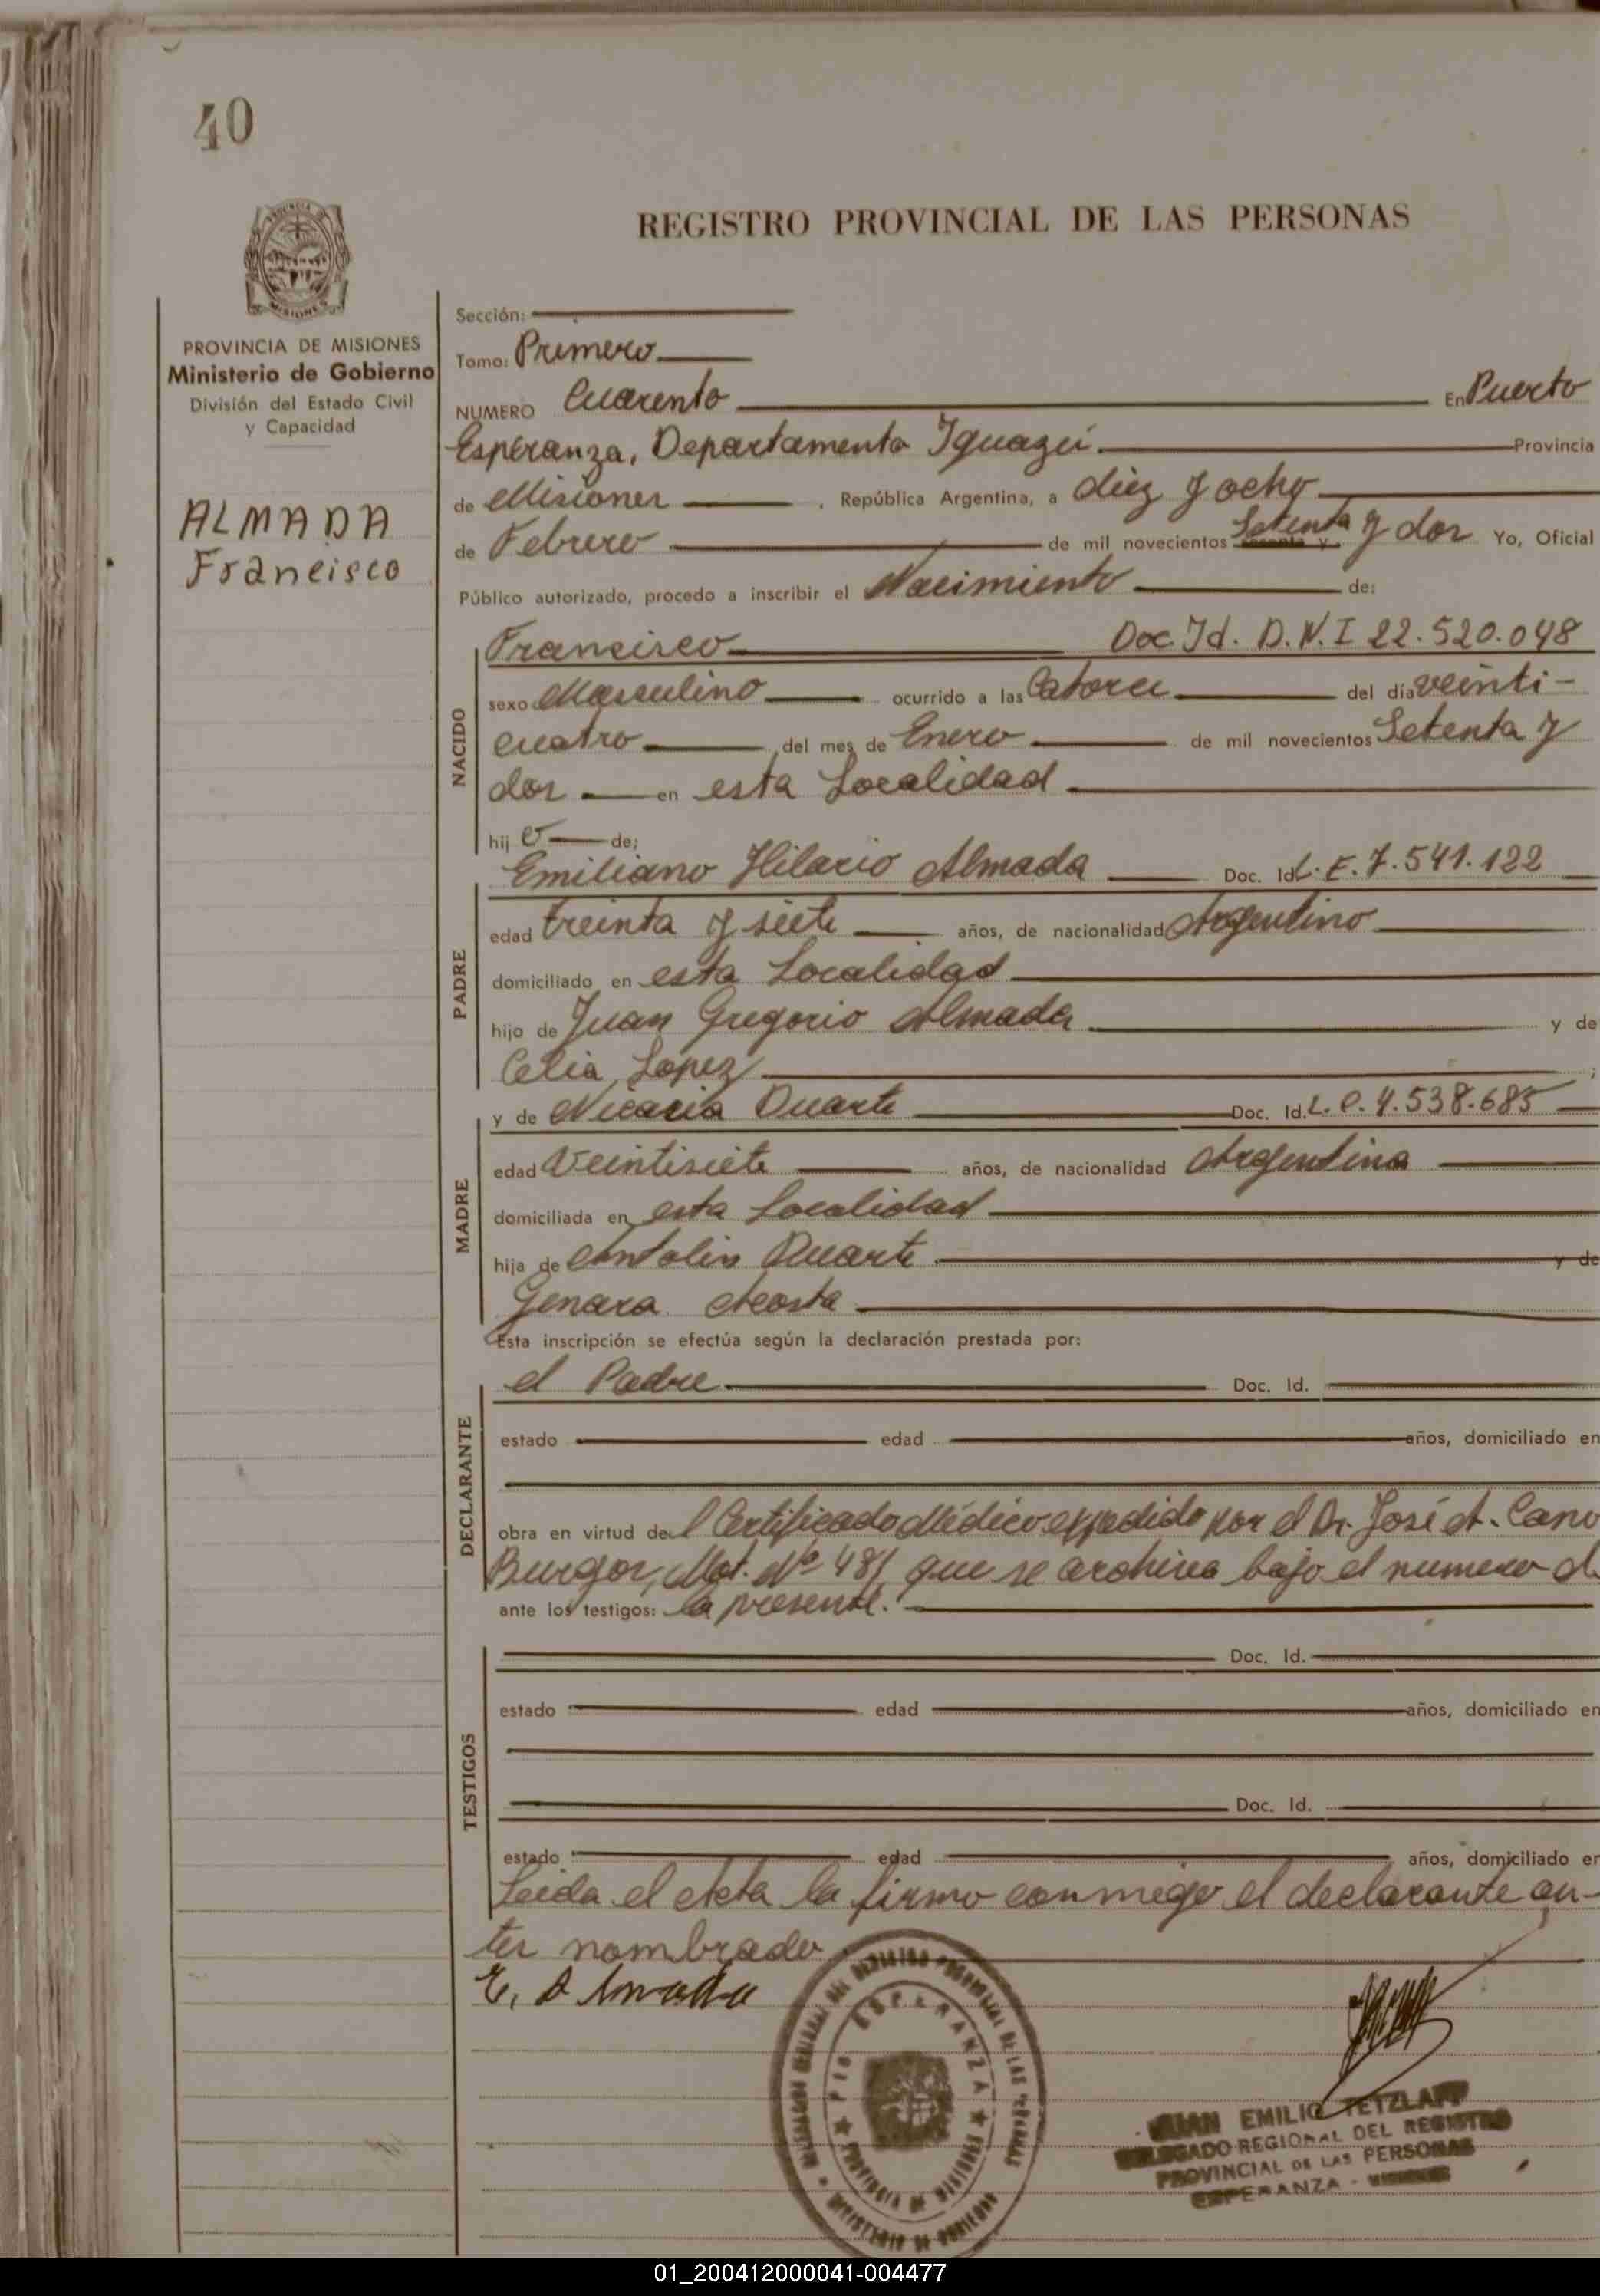 40
REGISTRO PROVINCIAL DE LAS PERSONAS
PROVINCIA DE MISIONES
Ministerio de Gobierno
División del Estado Civil
y Capacidad
ALMADA
Francisco
Sección:
Tomo: Primero
NUMERO Cuarenta En Puerto
Esperanza, Departamento Iguazú Provincia
de Misiones , República Argentina, a diez y ocho
de Febrero de mil novecientos Setenta y dos Yo, Oficial
Público autorizado, procedo a inscribir el Nacimiento de:
NACIDO
Francisco Doc. Id. D.N.I 22.520.048
sexo Masculino ocurrido a las Catorce del día veinti-
cuatro del mes de Enero de mil novecientos Setenta y
dos en esta Localidad
hij o de:
PADRE
Emiliano Hilario Almada Doc. Id. L. E. 7.541.122
edad treinta y siete años, de nacionalidad Argentino
domiciliado en esta Localidad
hijo de Juan Gregorio Almada y de
Celia Lopez ;
MADRE
y de Nicacia Duarte Doc. Id. L. C. 4.538.685
edad Veintisiete años, de nacionalidad Argentina
domiciliada en esta Localidad
hija de Antolin Duarte y de
Genara Acosta
Esta inscripción se efectúa según la declaración prestada por:
DECLARANTE
el Padre Doc. Id.
estado edad años, domiciliado en
obra en virtud de l Certificado Médico expedido por el Dr. José A. Cano
Burgos, Mat. Nº 481 que se archiva bajo el numero d
ante los testigos: la presente.
TESTIGOS
Doc. Id.
estado edad años, domiciliado en
Doc. Id.
estado edad años, domiciliado en
Leida el Acta la firmo conmigo el declarante an-
tes nombrado
E. Almada
DELEGACION REGIONAL DEL REGISTRO PROVINCIAL DE LAS PERSONAS
PTO ESPERANZA
PROVINCIA DE MISIONES
MINISTERIO DE GOBIERNO
JUAN EMILIO TETZLAFF
DELEGADO REGIONAL DEL REGISTRO
PROVINCIAL DE LAS PERSONAS
ESPERANZA - MISIONES
01_200412000041-004477